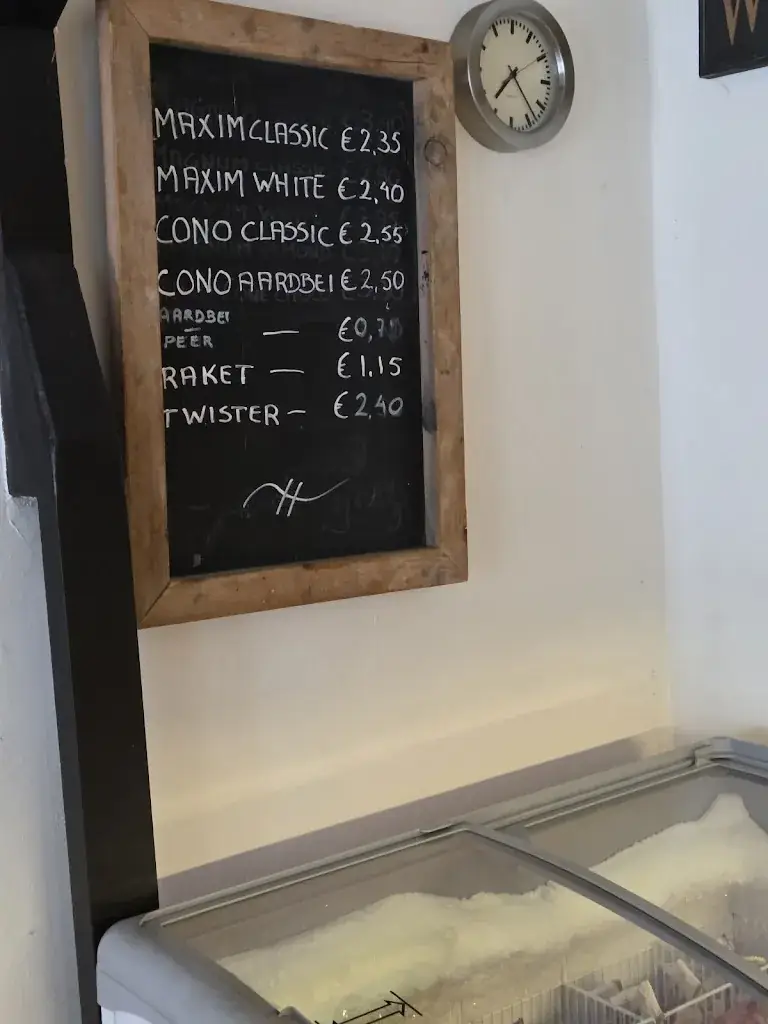 MAXIM CLASSIC €2,35
MAXIM WHITE €2,40
CONO CLASSIC €2,55
CONO AARDBEI €2,50
AARDBEI
PEER — €0,75
RAKET — €1.15
TWISTER — €2,40
W